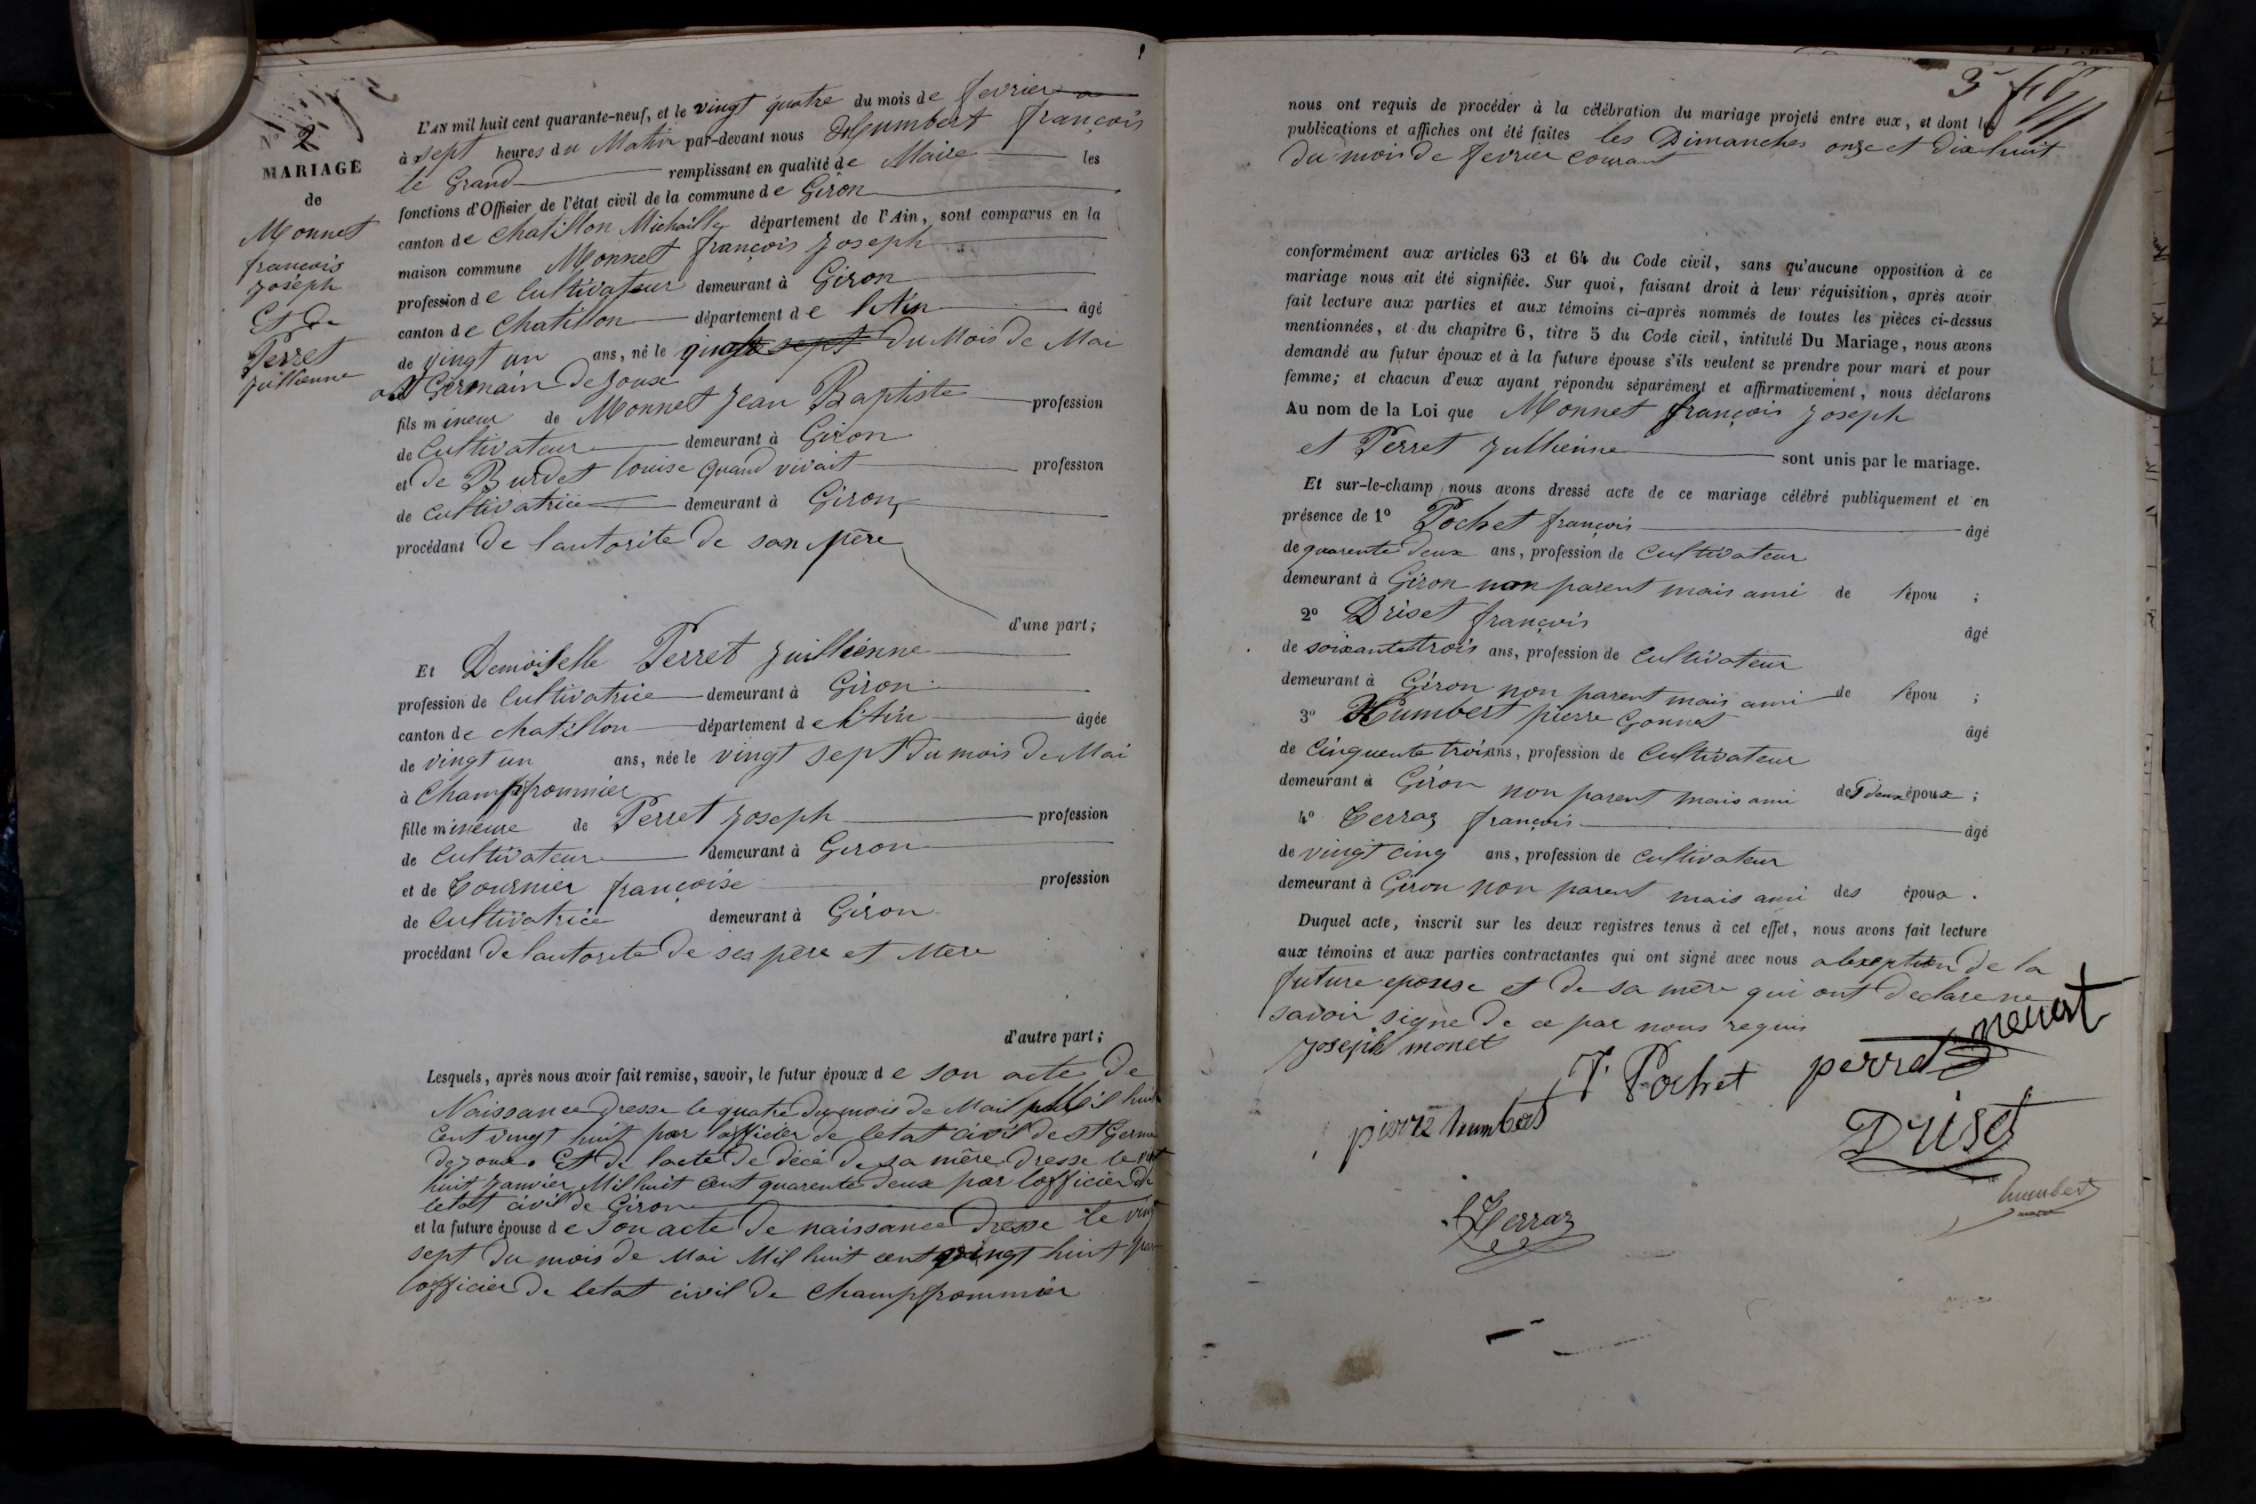 2
MARIAGE
de
Monnet
françois
joseph
Et de
Perret
jullienne
L'AN mil huit cent quarante-neuf, et le vingt quatre du mois de fevrier
à sept heures du Matin par-devant nous humbert françois
le Grand remplissant en qualité de Maire les
fonctions d'Officier de l'état civil de la commune de Giron
canton de Chatillon Michaille département de l'Ain, sont comparus en la
maison commune Monnet françois joseph
profession de Cultivateur demeurant à Giron
canton de Chatillon département de l'Ain âgé
de vingt un ans, né le quatre sept du Mois de Mai
a St Germain de joux
fils mineur de Monnet jean Baptiste profession
de Cultivateur demeurant à Giron
et de Burdet louise quand vivait profession
de Cultivatrice demeurant à Giron
procédant de lautorite de son père
d'une part;
Et Demoiselle Perret juillienne
profession de Cultivatrice demeurant à Giron
canton de chatillon département de l'Ain âgée
de vingt un ans, née le vingt sept du mois de Mai
à Champfrommier
fille mineure de Perret joseph profession
de Cultivateur demeurant à Giron
et de Tournier françoise profession
de Cultivatrice demeurant à Giron
procédant de lautorite de ses père et Mere
d'autre part;
Lesquels, après nous avoir fait remise, savoir, le futur époux de son acte de
Naissance dresse le quatre du mois de Mai Mil huit
Cent vingt huit par lofficier de letat civil de St Germain
de joux. Et de lacte de décé de sa mère dresse le vingt
huit janvier Mil huit cent quarente deux par lofficier de
letat civil de Giron
et la future épouse de son acte de naissance dresse le vingt
sept du mois de Mai Mil huit cent vingt huit par
lofficier de letat civil de Champfrommier
3
nous ont requis de procéder à la célébration du mariage projeté entre eux, et dont les
publications et affiches ont été faites les Dimanches onze et dix huit
du mois de fevrier courant
conformément aux articles 63 et 64 du Code civil, sans qu'aucune opposition à ce
mariage nous ait été signifiée. Sur quoi, faisant droit à leur réquisition, après avoir
fait lecture aux parties et aux témoins ci-après nommés de toutes les pièces ci-dessus
mentionnées, et du chapitre 6, titre 5 du Code civil, intitulé Du Mariage, nous avons
demandé au futur époux et à la future épouse s'ils veulent se prendre pour mari et pour
femme; et chacun d'eux ayant répondu séparément et affirmativement, nous déclarons
Au nom de la Loi que Monnet françois joseph
et Perret jullienne sont unis par le mariage.
Et sur-le-champ nous avons dressé acte de ce mariage célébré publiquement et en
présence de 1° Pochet françois âgé
de quarente deux ans, profession de Cultivateur
demeurant à Giron non parent mais ami de l'épou ;
2° Driset françois âgé
de soixante trois ans, profession de Cultivateur
demeurant à Giron non parent mais ami de l'épou ;
3° Humbert pierre Gonnet âgé
de Cinquente trois ans, profession de Cultivateur
demeurant à Giron non parent mais ami des deux époux ;
4° Terraz françois âgé
de vingt cinq ans, profession de Cultivateur
demeurant à Giron non parent mais ami des époux .
Duquel acte, inscrit sur les deux registres tenus à cet effet, nous avons fait lecture
aux témoins et aux parties contractantes qui ont signé avec nous a lexeption de la
future epouse et de sa mère qui ont declare ne
savoir signe de ce par nous requis
joseph monet
monet
F. Pochet perret
pierre humbert
Driset
humbert
maire
f Terraz